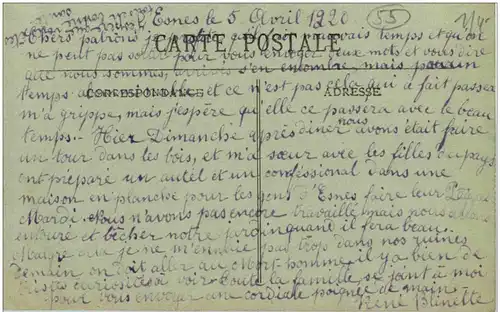 Esnes le 5 Avril 1920
55
Chers patrons je
temps et qu'on
CARTE POSTALE
ne peut pas pour vous envoyer deux mots et vous dire
que nous sommes arrivés s'en encombre mais par un
temps
CORRESPONDANCE
et ce n'est pas cela qui a fait passer
ADRESSE
ma grippe, mais j'espère qu'elle ce passera avec le beau
temps. Hier Dimanche après diner nous avons était faire
un tour dans les bois, et ma sœur avec les filles du pays
ont préparé un autel et un confessional dans une
maison en planche pour les gens d'Esnes faire leur Pâques
Mardi. Nous n'avons pas encore travaillé mais nous allons
entouré et bêcher notre jardin quand il fera beau.
Malgré cela je ne m'ennuie pas trop dans nos ruines
Demain on doit aller au Mort-homme il y a bien de
curiosités à voir. Toute la famille se joint à moi
pour vous envoyer une cordiale poignée de main.
René Plinette